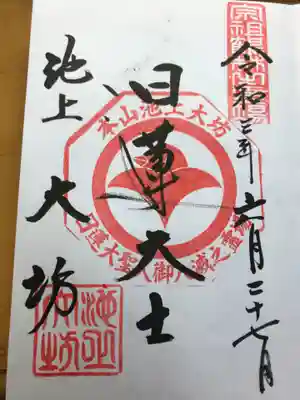 令和三年六月二十七日
本山池上大坊
日蓮大士
日蓮大聖人御入滅之霊場
池上
大坊
池上大坊